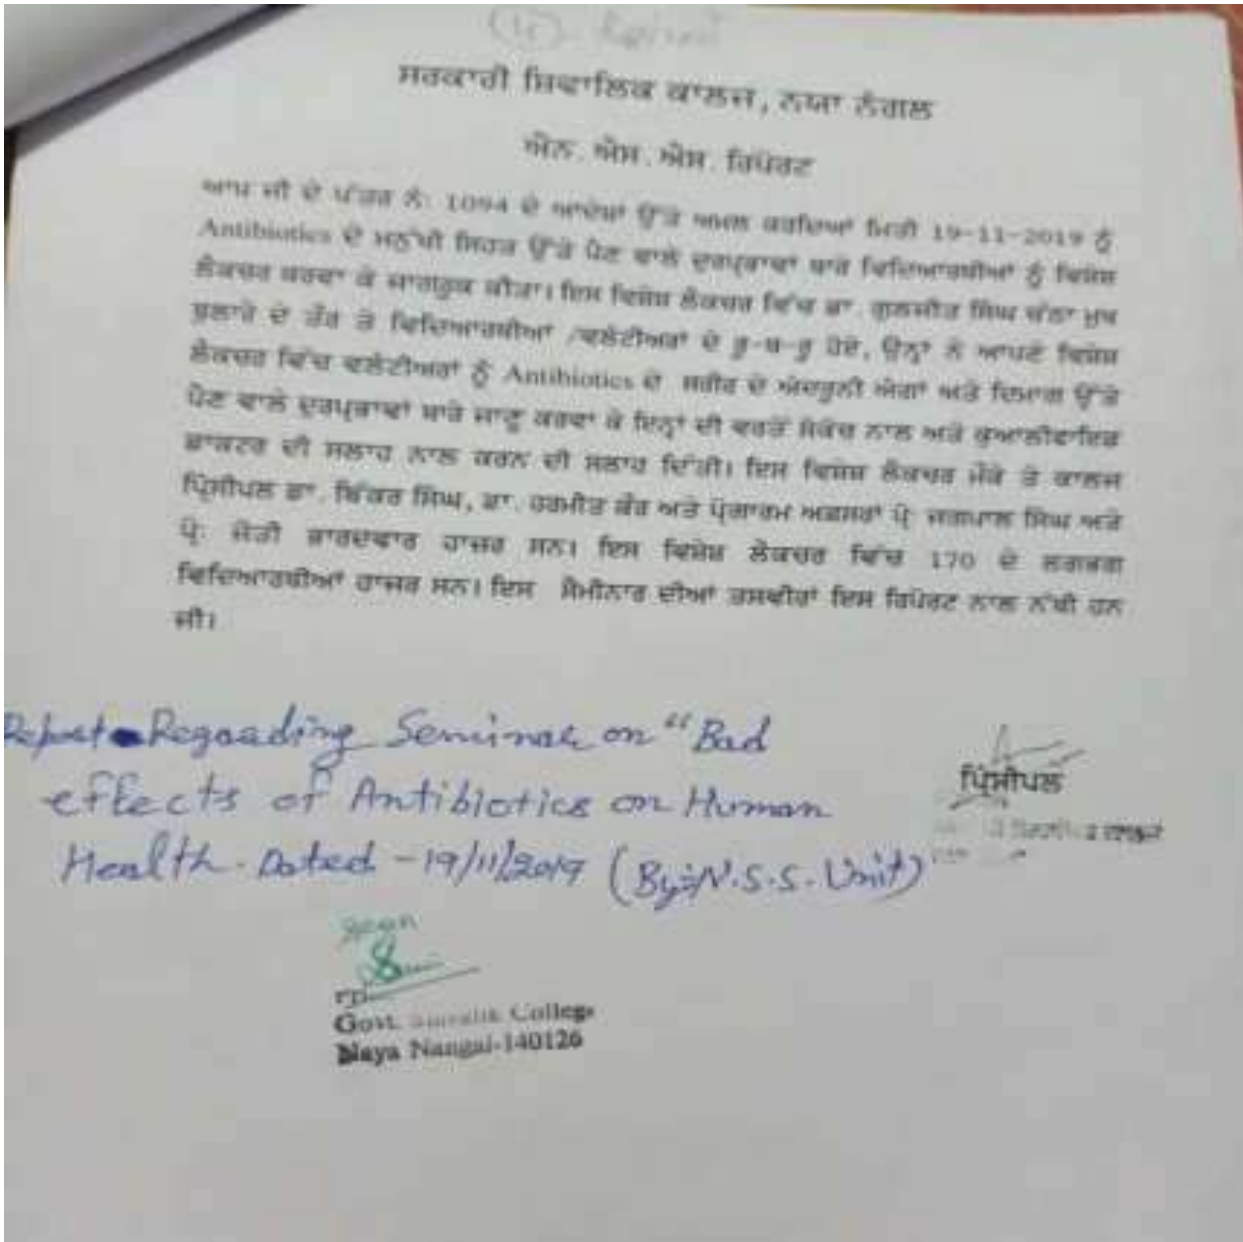 ਸਰਕਾਰੀ ਸ਼ਿਵਾਲਿਕ ਕਾਲਜ, ਨਯਾ ਨੰਗਲ
ਐਨ.ਐਸ.ਐਸ. ਰਿਪੋਰਟ
ਆਪ ਜੀ ਦੇ ਪੱਤਰ ਨੰ: 1094 ਦੇ ਆਦੇਸ਼ਾਂ ਉੱਤੇ ਅਮਲ ਕਰਦਿਆਂ ਮਿਤੀ 19-11-2019 ਨੂੰ
Antibiotics ਦੇ ਮਨੁੱਖੀ ਸਿਹਤ ਉੱਤੇ ਪੈਣ ਵਾਲੇ ਦੁਰਪ੍ਰਭਾਵਾਂ ਬਾਰੇ ਵਿਦਿਆਰਥੀਆਂ ਨੂੰ ਵਿਸ਼ੇਸ਼
ਲੈਕਚਰ ਕਰਵਾ ਕੇ ਜਾਗਰੂਕ ਕੀਤਾ। ਇਸ ਵਿਸ਼ੇਸ਼ ਲੈਕਚਰ ਵਿੱਚ ਡਾ. ਗੁਲਜੀਤ ਸਿੰਘ ਚੱਨਾ ਮੁਖ
ਬੁਲਾਰੇ ਦੇ ਤੌਰ ਤੇ ਵਿਦਿਆਰਥੀਆਂ /ਵਲੰਟੀਅਰਾਂ ਦੇ ਰੂ-ਬ-ਰੂ ਹੋਏ, ਉਨ੍ਹਾਂ ਨੇ ਆਪਣੇ ਵਿਸ਼ੇਸ਼
ਲੈਕਚਰ ਵਿੱਚ ਵਲੰਟੀਅਰਾਂ ਨੂੰ Antibiotics ਦੇ ਸਰੀਰ ਦੇ ਅੰਦਰੂਨੀ ਅੰਗਾਂ ਅਤੇ ਦਿਮਾਗ ਉੱਤੇ
ਪੈਣ ਵਾਲੇ ਦੁਰਪ੍ਰਭਾਵਾਂ ਬਾਰੇ ਜਾਣੂ ਕਰਵਾ ਕੇ ਇਨ੍ਹਾਂ ਦੀ ਵਰਤੋਂ ਸੰਕੋਚ ਨਾਲ ਅਤੇ ਕੁਆਲੀਫਾਇਡ
ਡਾਕਟਰ ਦੀ ਸਲਾਹ ਨਾਲ ਕਰਨ ਦੀ ਸਲਾਹ ਦਿੱਤੀ। ਇਸ ਵਿਸ਼ੇਸ਼ ਲੈਕਚਰ ਮੌਕੇ ਤੇ ਕਾਲਜ
ਪ੍ਰਿੰਸੀਪਲ ਡਾ. ਸਿੰਘ, ਡਾ. ਹਰਮੀਤ ਕੌਰ ਅਤੇ ਪ੍ਰੋਗਾਰਮ ਅਫਸਰਾਂ ਪ੍ਰੋ: ਜਗਪਾਲ ਸਿੰਘ ਅਤੇ
ਪ੍ਰੋ: ਜੋਤੀ ਭਾਰਦਵਾਰ ਹਾਜਰ ਸਨ। ਇਸ ਵਿਸ਼ੇਸ਼ ਲੈਕਚਰ ਵਿੱਚ 170 ਦੇ ਲਗਭਗ
ਵਿਦਿਆਰਥੀਆਂ ਹਾਜਰ ਸਨ। ਇਸ ਸੈਮੀਨਾਰ ਦੀਆਂ ਤਸਵੀਰਾਂ ਇਸ ਰਿਪੋਰਟ ਨਾਲ ਨੱਥੀ ਹਨ
ਜੀ।
Report Regarding Seminar on "Bad
effects of Antibiotics on Human
Health. Dated - 19/11/2019 (By:N.S.S. Unit)
ਪ੍ਰਿੰਸੀਪਲ
Govt. College
Naya Nangal-140126